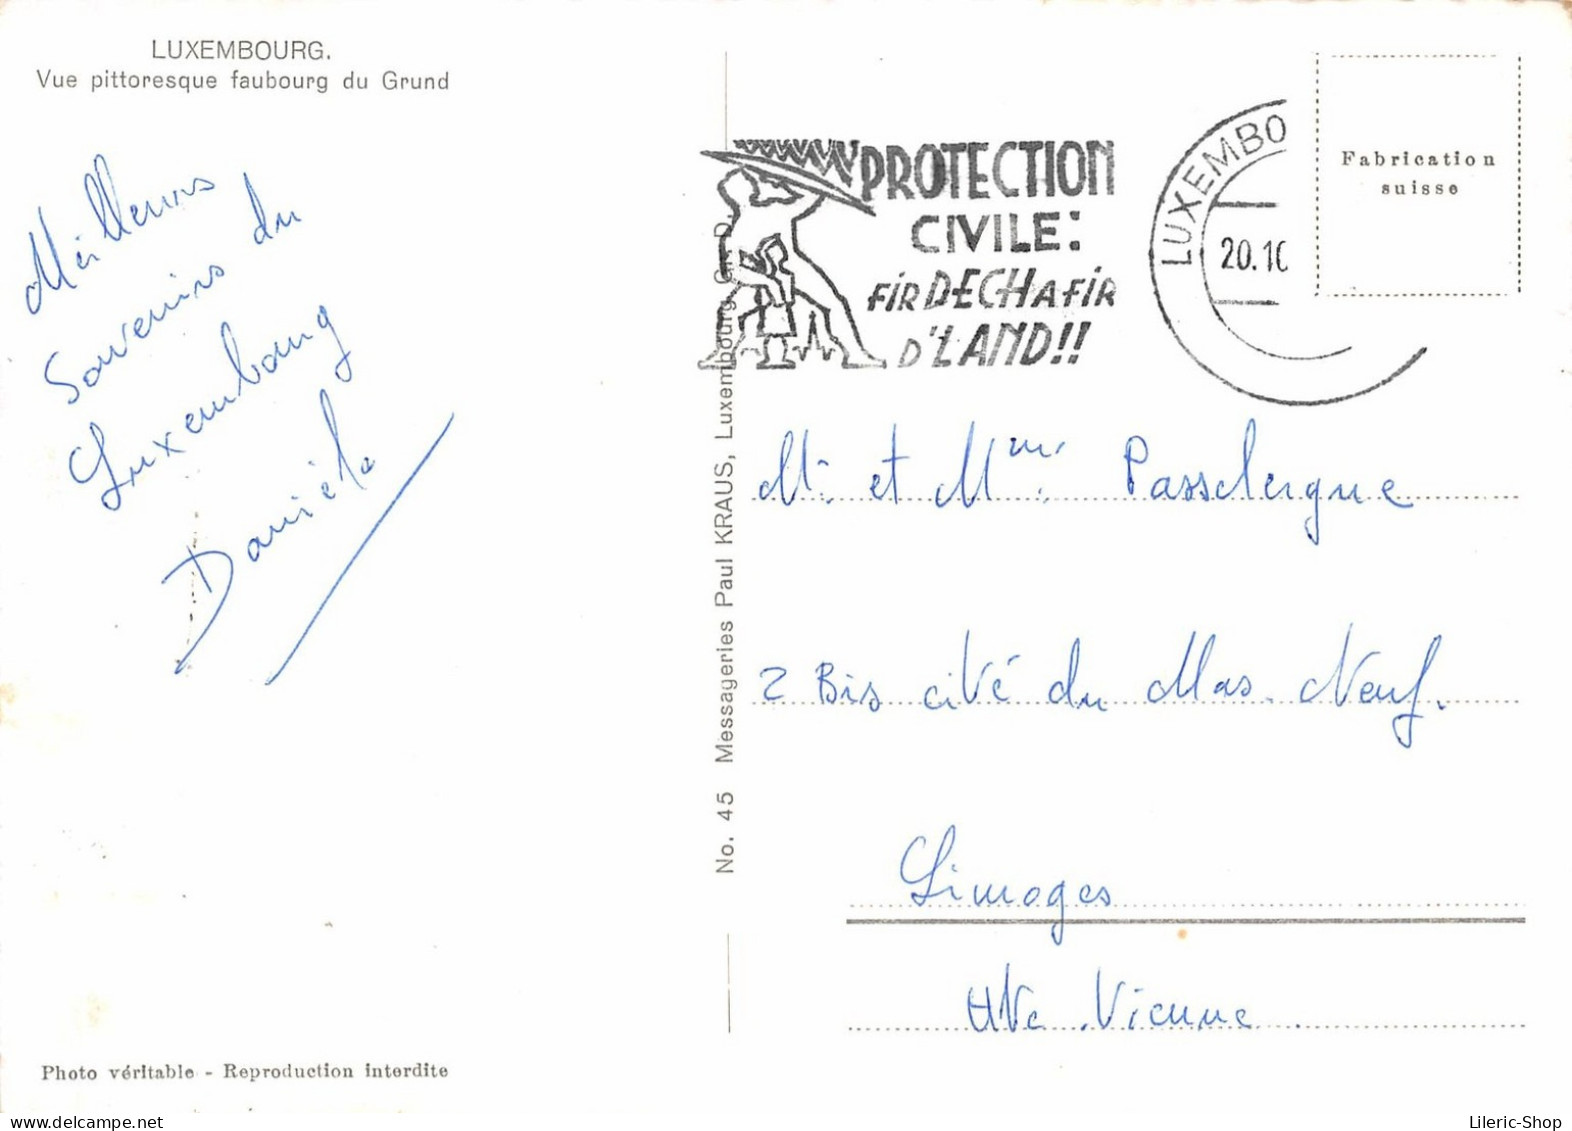 LUXEMBOURG.
Vue pittoresque faubourg du Grund
Meilleurs
Souvenirs du
Luxembourg
Danièle
Photo véritable - Reproduction interdite
No. 45 Messageries Paul KRAUS, Luxembourg, Gr. D.
PROTECTION
CIVILE:
FIR DECH A FIR
D'LAND!!
LUXEMBO
20.10
Fabrication
suisse
Mr et Mme Passelergue
2 Bis cité du Mas. Neuf.
Limoges
Hte Vienne
Lileric-Shop